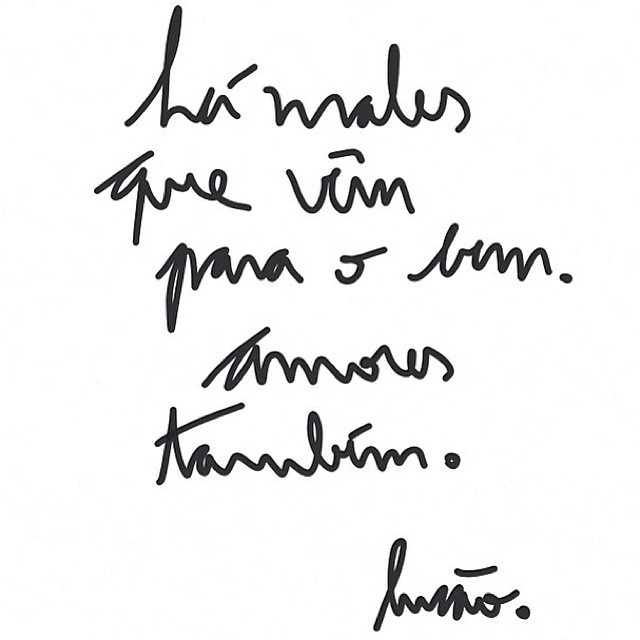 há males
que vêm
para o bem.
amores
também.